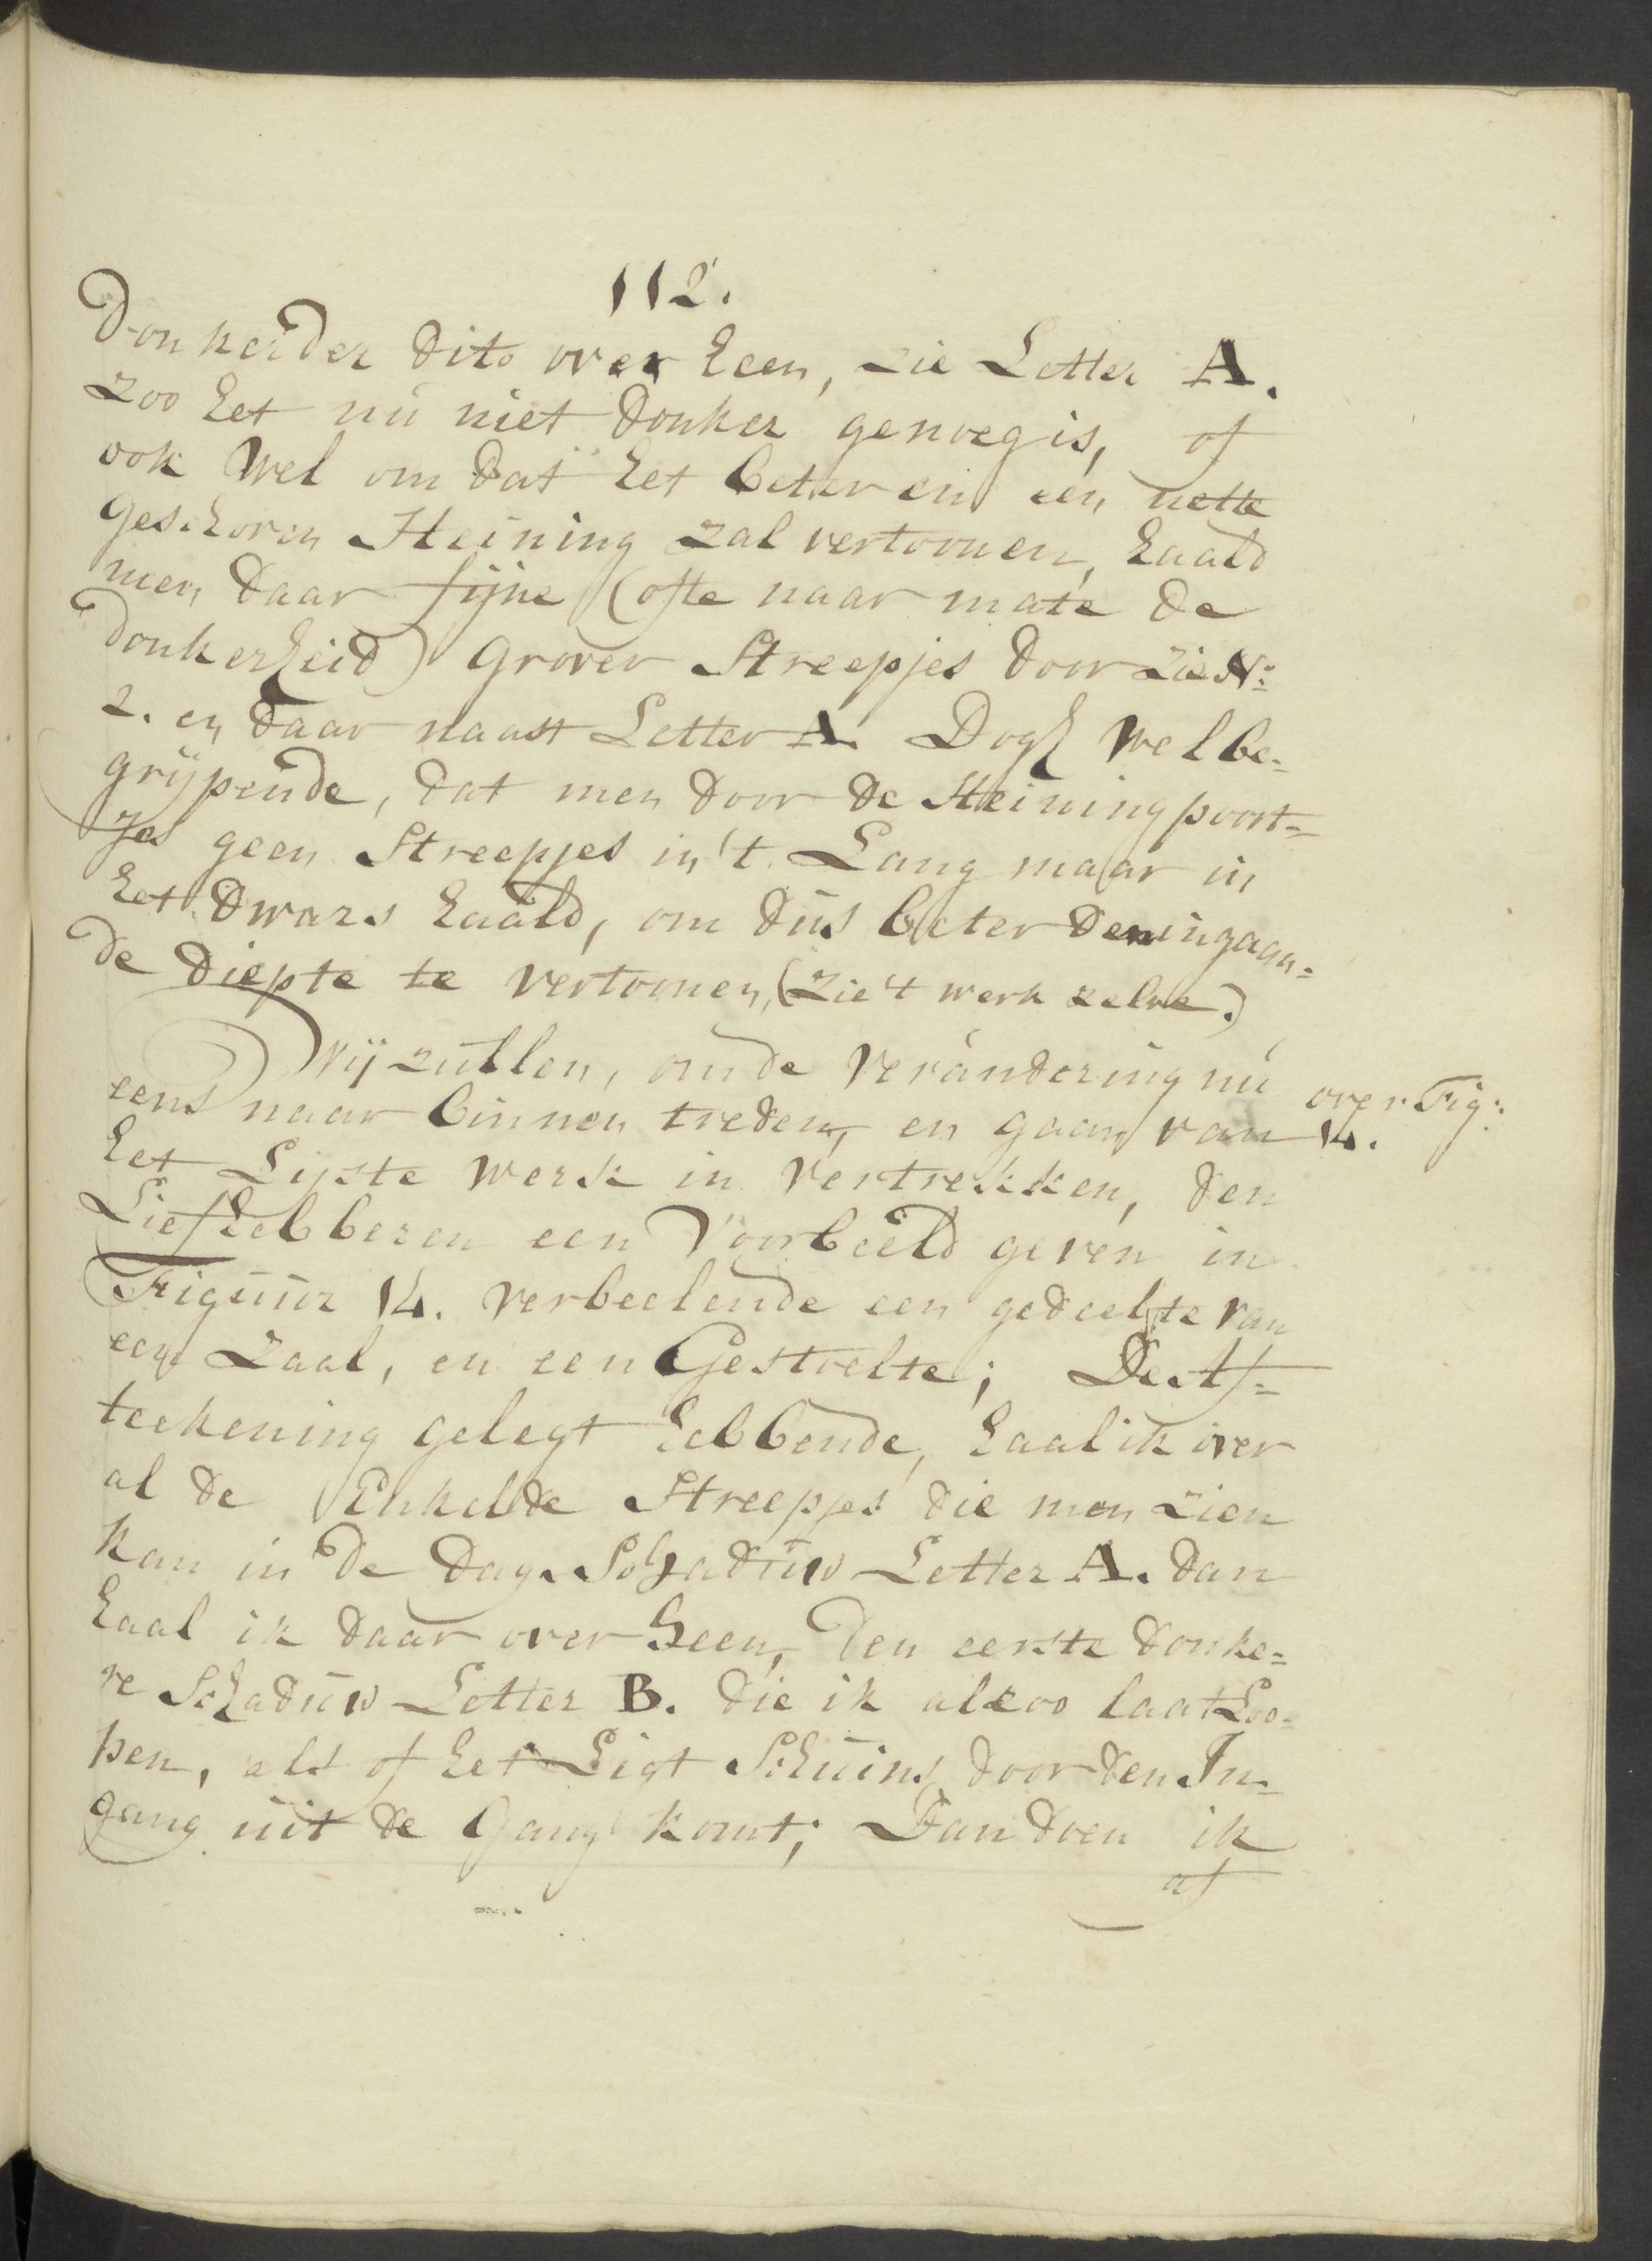 112.
Donkerder dito over heen, zie Letter A.
zoo het nu niet donker genoeg is, of
ook wel om dat het beter en een nette
geschoren Heining zal vertoonen, haald
men daar fijne (ofte naar mate de
donkerheid) grover Streepjes door zie N:
2. en daar naast Letter A. Dogh wel be=
grijpende, dat men door de Heining poort=
jes geen Streepjes in 't Lang maar in
het dwars haald, om dus beter den ingaan=
de diepte te vertoonen, (zie 't werk zelve.)
Wij zullen, om de verandering nu
over Fig:
14.
eens naar binnen treden, en gaan van
het Lijste werk in vertrekken, den
Liefhebberen een Voorbeeld geven in
Figuur 14. verbeelende een gedeelte van
een Zaal, en een Gestoelte; De Af=
teekening gelegt hebbende, haal ik over
al de Enkelde Streepjes die men zien
kan in de Dag-Schaduw Letter A. dan
haal ik daar over heen, den eerste donke=
re Schaduw Letter B. die ik alzoo laat Loo=
pen, als of het Ligt Schuins door den In=
gang uit de Gang komt; Dan doen ik
af